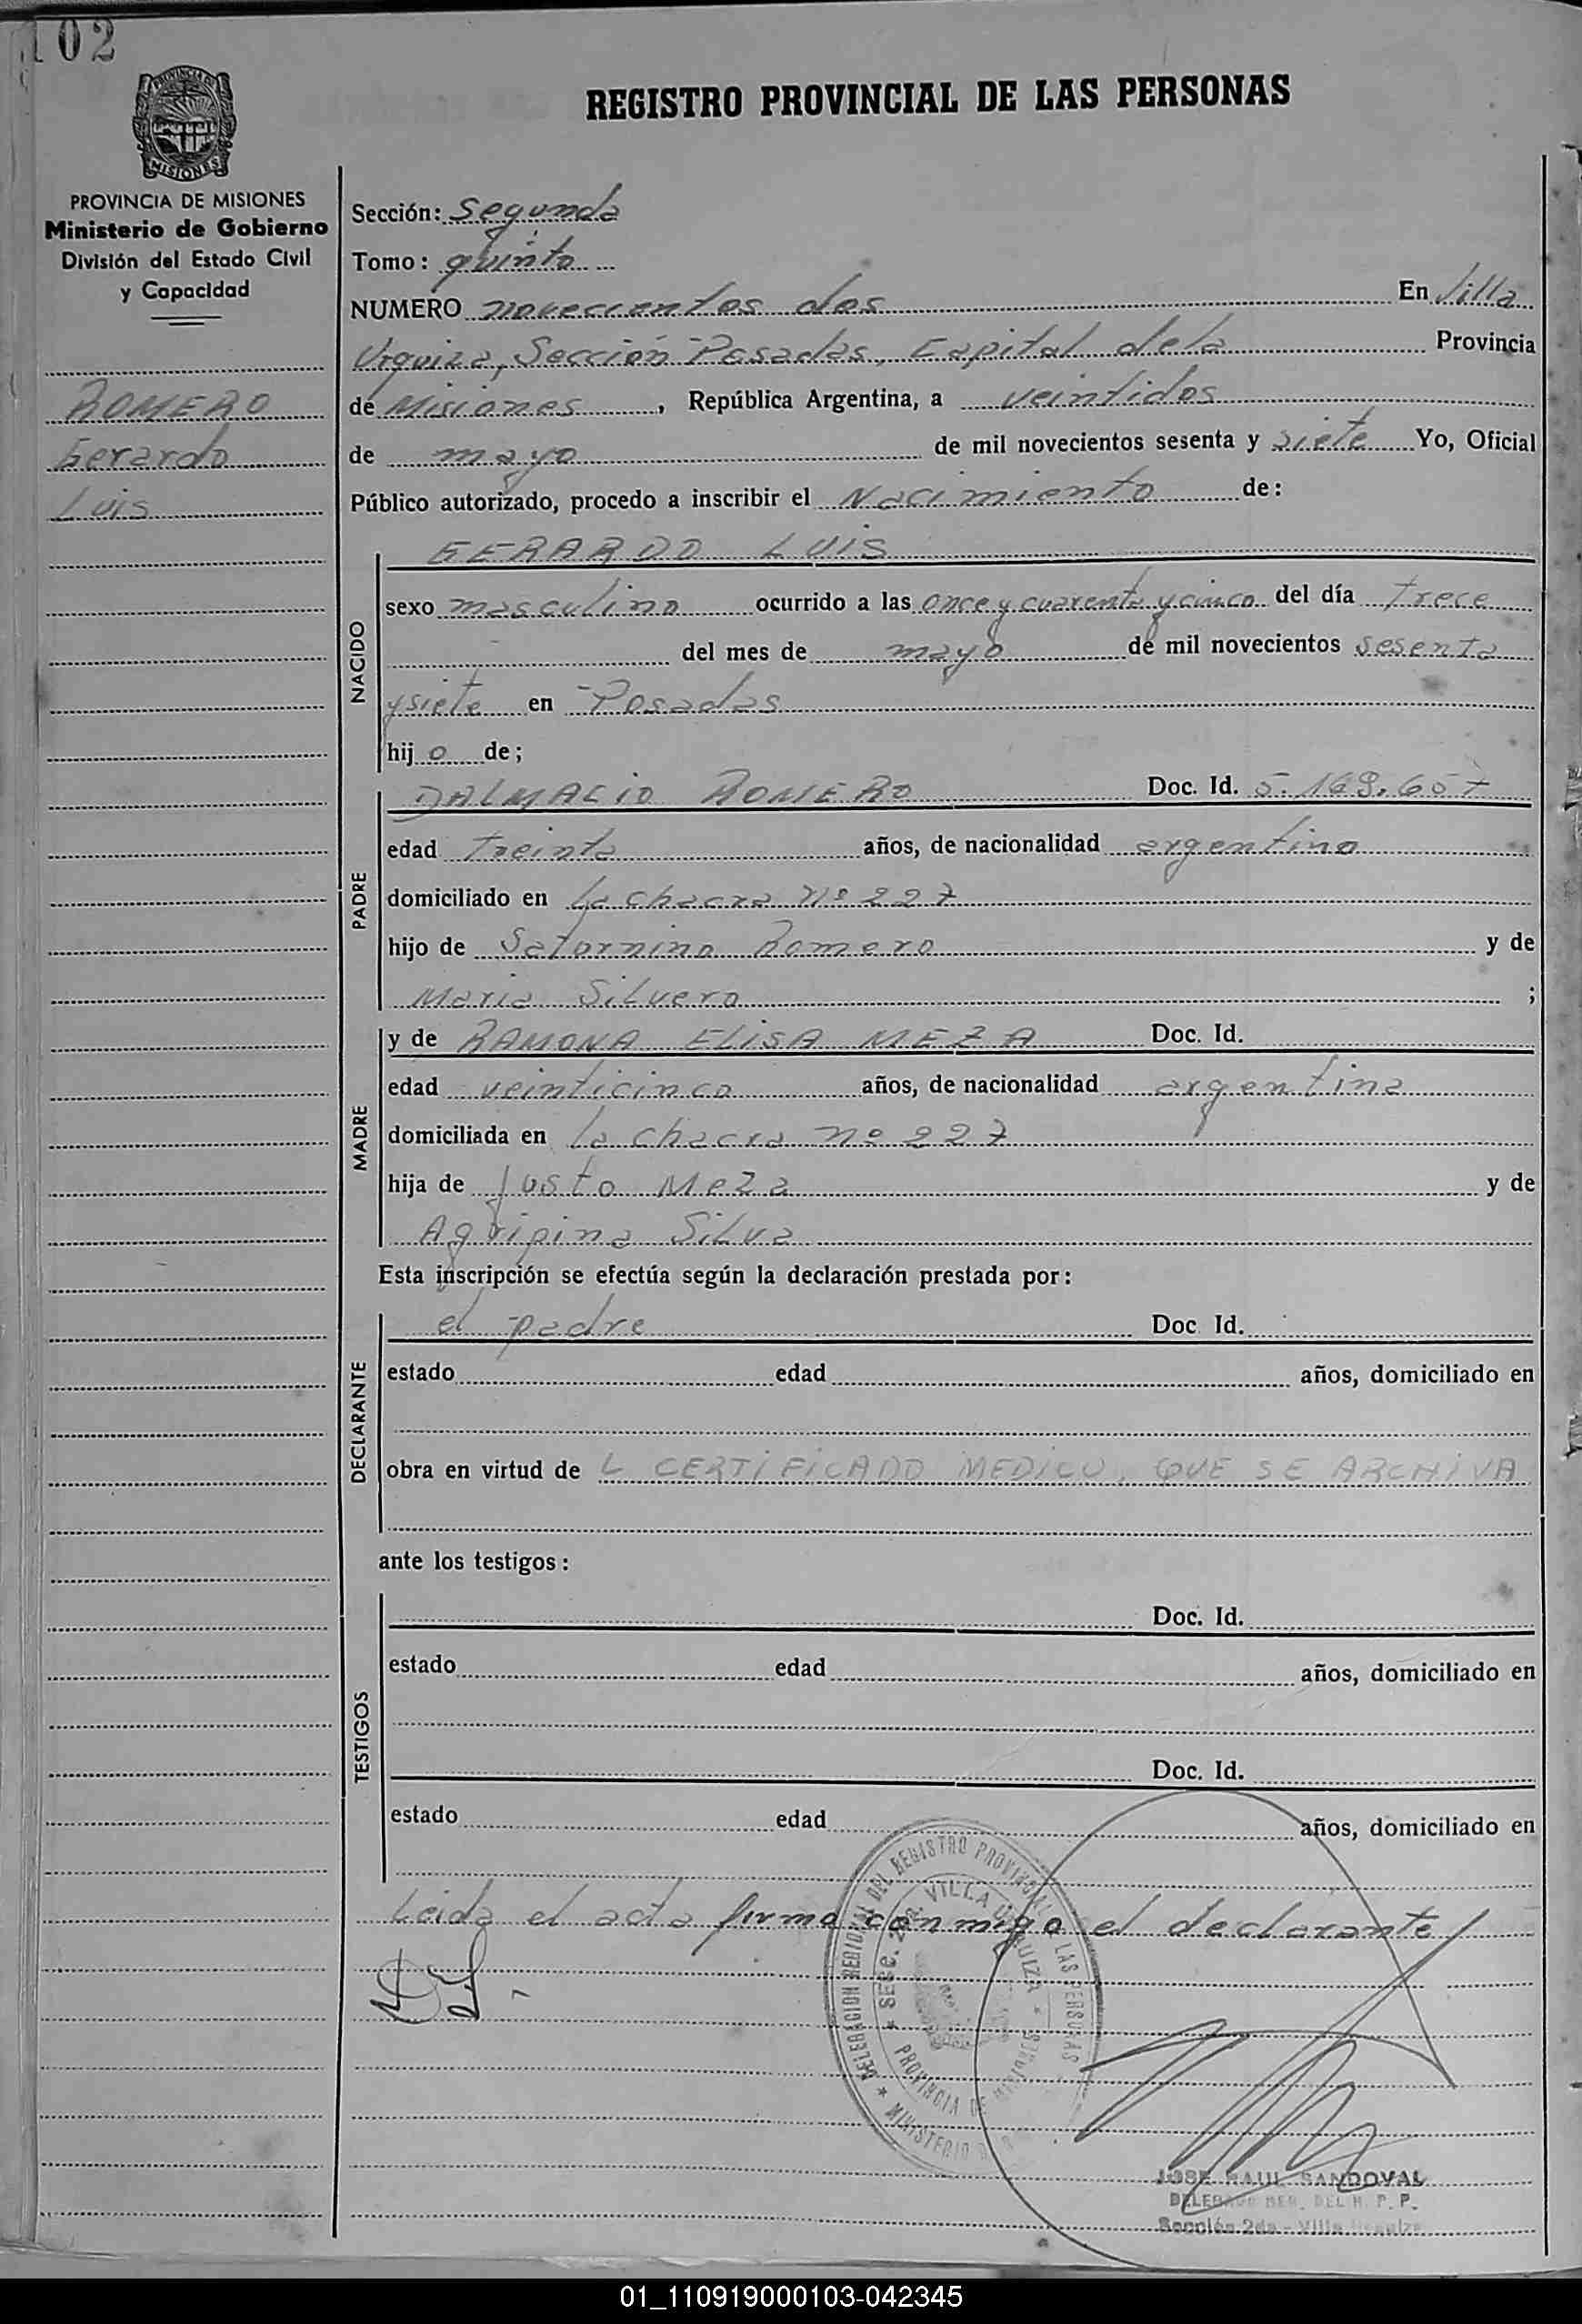 102
PROVINCIA DE
MISIONES
REGISTRO PROVINCIAL DE LAS PERSONAS
PROVINCIA DE MISIONES
Ministerio de Gobierno
División del Estado Civil
y Capacidad
ROMERO
Gerardo
Luis
Sección: Segunda
Tomo: quinto
NUMERO novecientos dos En Villa
Urquiza, Sección Posadas, Capital de la Provincia
de Misiones, República Argentina, a veintidos
de mayo de mil novecientos sesenta y siete Yo, Oficial
Público autorizado, procedo a inscribir el Nacimiento de:
NACIDO
GERARDO LUIS
sexo masculino ocurrido a las once y cuarenta y cinco del día trece
del mes de mayo de mil novecientos sesenta
y siete en Posadas
hijo de;
PADRE
DALMACIO ROMERO Doc. Id. 5.169.657
edad treinta años, de nacionalidad argentino
domiciliado en La chacra Nº 227
hijo de Saturnino Romero y de
Maria Silvero ;
MADRE
y de RAMONA ELISA MEZA Doc. Id.
edad veinticinco años, de nacionalidad argentina
domiciliada en la chacra nº 227
hija de Justo Meza y de
Agripina Silva
Esta inscripción se efectúa según la declaración prestada por:
DECLARANTE
el padre Doc Id.
estado edad años, domiciliado en
obra en virtud de L CERTIFICADO MEDICO, QUE SE ARCHIVA
ante los testigos:
TESTIGOS
Doc. Id.
estado edad años, domiciliado en
Doc. Id.
estado edad años, domiciliado en
Leida el acta firma conmigo el declarante
DELEGACION REGIONAL DEL REGISTRO PROVINCIAL LAS PERSONAS
* SECC. 2da. VILLA URQUIZA *
PROVINCIA DE MISIONES
* MINISTERIO
JOSE RAUL SANDOVAL
DELEGADO REG. DEL R. P. P.
Sección 2da - Villa Urquiza
01_110919000103-042345